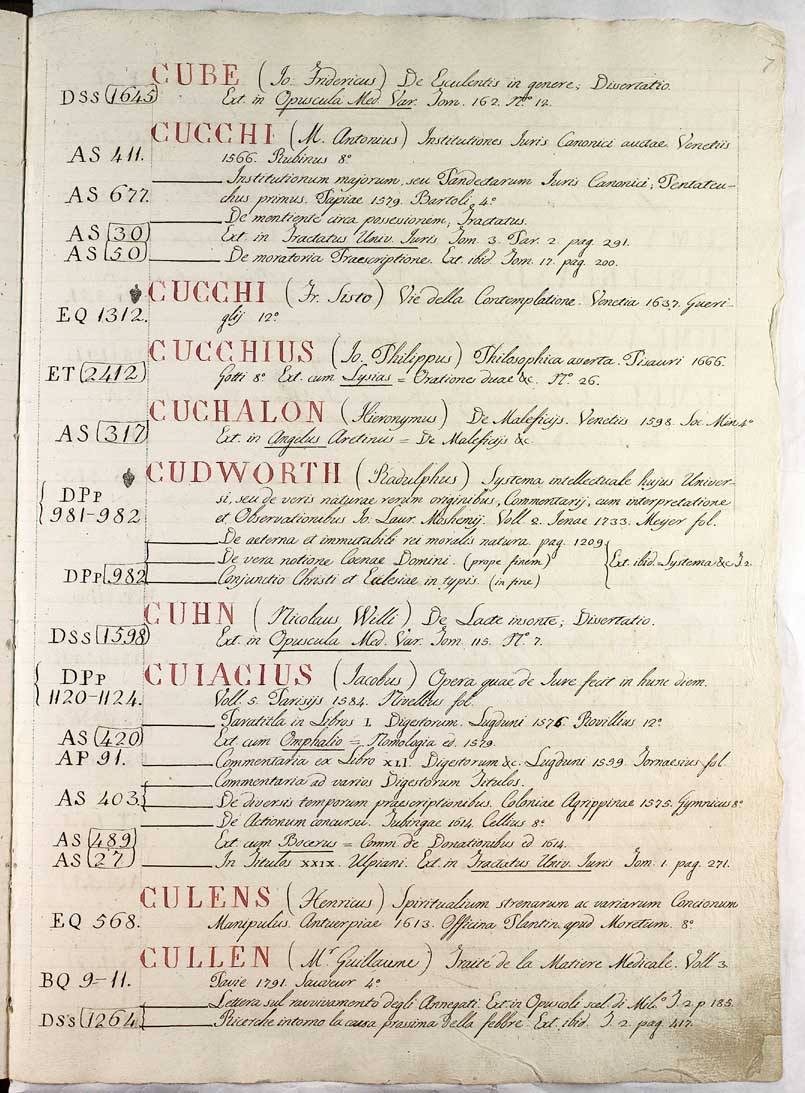 7
CUBE (Jo. Fridericus) De Esculentis in genere; Dissertatio.
DSS 1645 Ext. in Opuscula Med. Var. Tom. 162. Nº 12.
CUCCHI (M. Antonius) Institutiones Iuris Canonici auctae. Venetiis
AS 411. 1566. Rubinus 8º
Institutionum majorum, seu Pandectarum Iuris Canonici; Pentateu-
AS 677. chus primus. Papiae 1579. Bartoli 4º
De montiente circa possessionem; Tractatus.
AS 30 Ext. in Tractatus Univ. Iuris Tom. 3. Par. 2. pag. 291.
AS 50 De moratoria Praescriptione. Ext. ibid. Tom. 17. pag. 200.
CUCCHI (Fr. Sisto) Vie della Contemplatione. Venetia 1637. Gueri-
EQ 1312. glij 12º
CUCCHIUS (Jo. Philippus) Philosophica averta. Pisauri 1666.
ET 2412 Gotti 8º Ext. cum Lysias = Orationes duae &c. Nº 26.
CUCHALON (Hieronymus) De Maleficijs. Venetiis 1598. Soc. Min. 4º
AS 317 Ext. in Angelus Aretinus = De Maleficijs &c.
CUDWORTH (Radulphus) Systema intellectuale hujus Univer-
DPp si, seu de veris naturae rerum originibus, Commentarij, cum interpretatione
981-982 et Observationibus Jo. Laur. Moshemij. Voll. 2. Jenae 1733. Meyer fol.
De aeterna et immutabili rei moralis natura. pag. 1209
De vera notione Coenae Domini. (prope finem) Ext. ibid. Systema &c T. 2.
DPp. 982 Conjunctio Christi et Ecclesiae in typis. (in fine)
CUHN (Nicolaus Welli) De Lacte insonte; Dissertatio.
DSS 1598 Ext. in Opuscula Med. Var. Tom. 115. Nº 7.
CUIACIUS (Iacobus) Opera quae de Iure fecit in hunc diem.
DPp 1120-1124. Voll. 5. Parisijs 1584. Nivellius fol.
Paratitla in Libros L Digestorum. Lugduni 1576. Rovillius 12º
AS 420 Ext. cum Omphalio = Nomologia ed. 1579.
AP 91. Commentaria ex Libro XLI. Digestorum &c. Lugduni 1559. Tornaesius fol.
Commentaria ad varios Digestorum Titulos.
AS 403. De diversis temporum praescriptionibus. Coloniae Agrippinae 1575. Gymnicus 8º
De Actionum concursu. Tubingae 1614. Cellius 8º
AS 489 Ext. cum Bocerus = Comm. de Donationibus ed. 1614.
AS 27 In Titulos XXIX. Ulpiani. Ext. in Tractatus Univ. Iuris Tom. 1. pag. 271.
CULENS (Henricus) Spiritualium strenarum ac variarum Concionum
EQ 568. Manipulus. Antuerpiae 1613. Officina Plantin. apud Moretum. 8º
CULLÉN (Mr Guillaume) Traité de la Matiere Medicale. Voll. 3.
BQ 9-11. Pavie 1791. Sauveur 4º
Lettera sul ravvivamento degli Annegati. Ext. in Opuscoli scel. di Mil.º T. 2 p. 185.
DSS 1264 Ricerche intorno la causa prossima della febbre. Ext. ibid. T. 2. pag. 417.